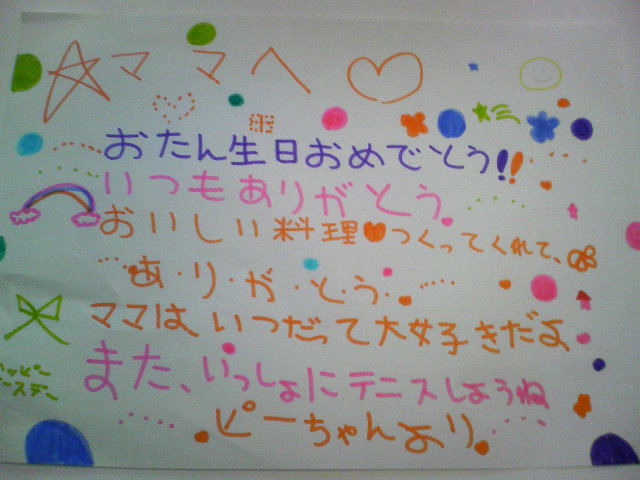 ママへ
おたん生日おめでとう!!
いつもありがとう
おいしい料理♥つくってくれて、
あ・り・が・と・う・
ママは、いつだって大好きだよ
また、いっしょにテニスしようね
ハッピー
バースデー
ピーちゃんより